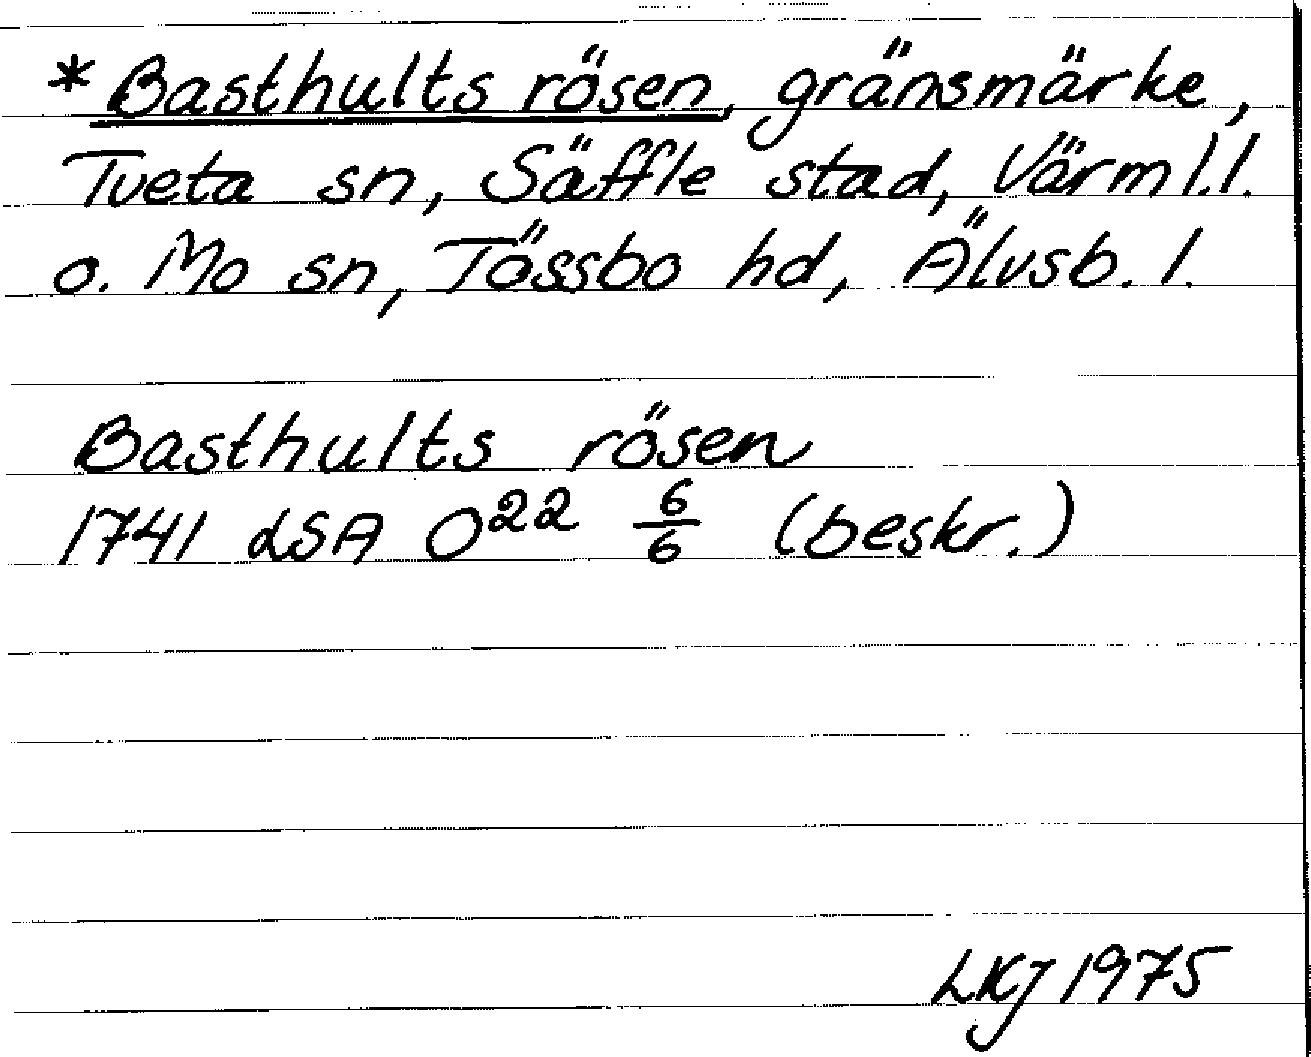 *Basthults rösen, gränsmärke,
Tveta sn, Säffle stad, Värml.l.
o. Mo sn, Tössbo hd, Älvsb. l.
Basthults rösen
1741 LSA O²² 6/6 (beskr.)
LKJ 1975